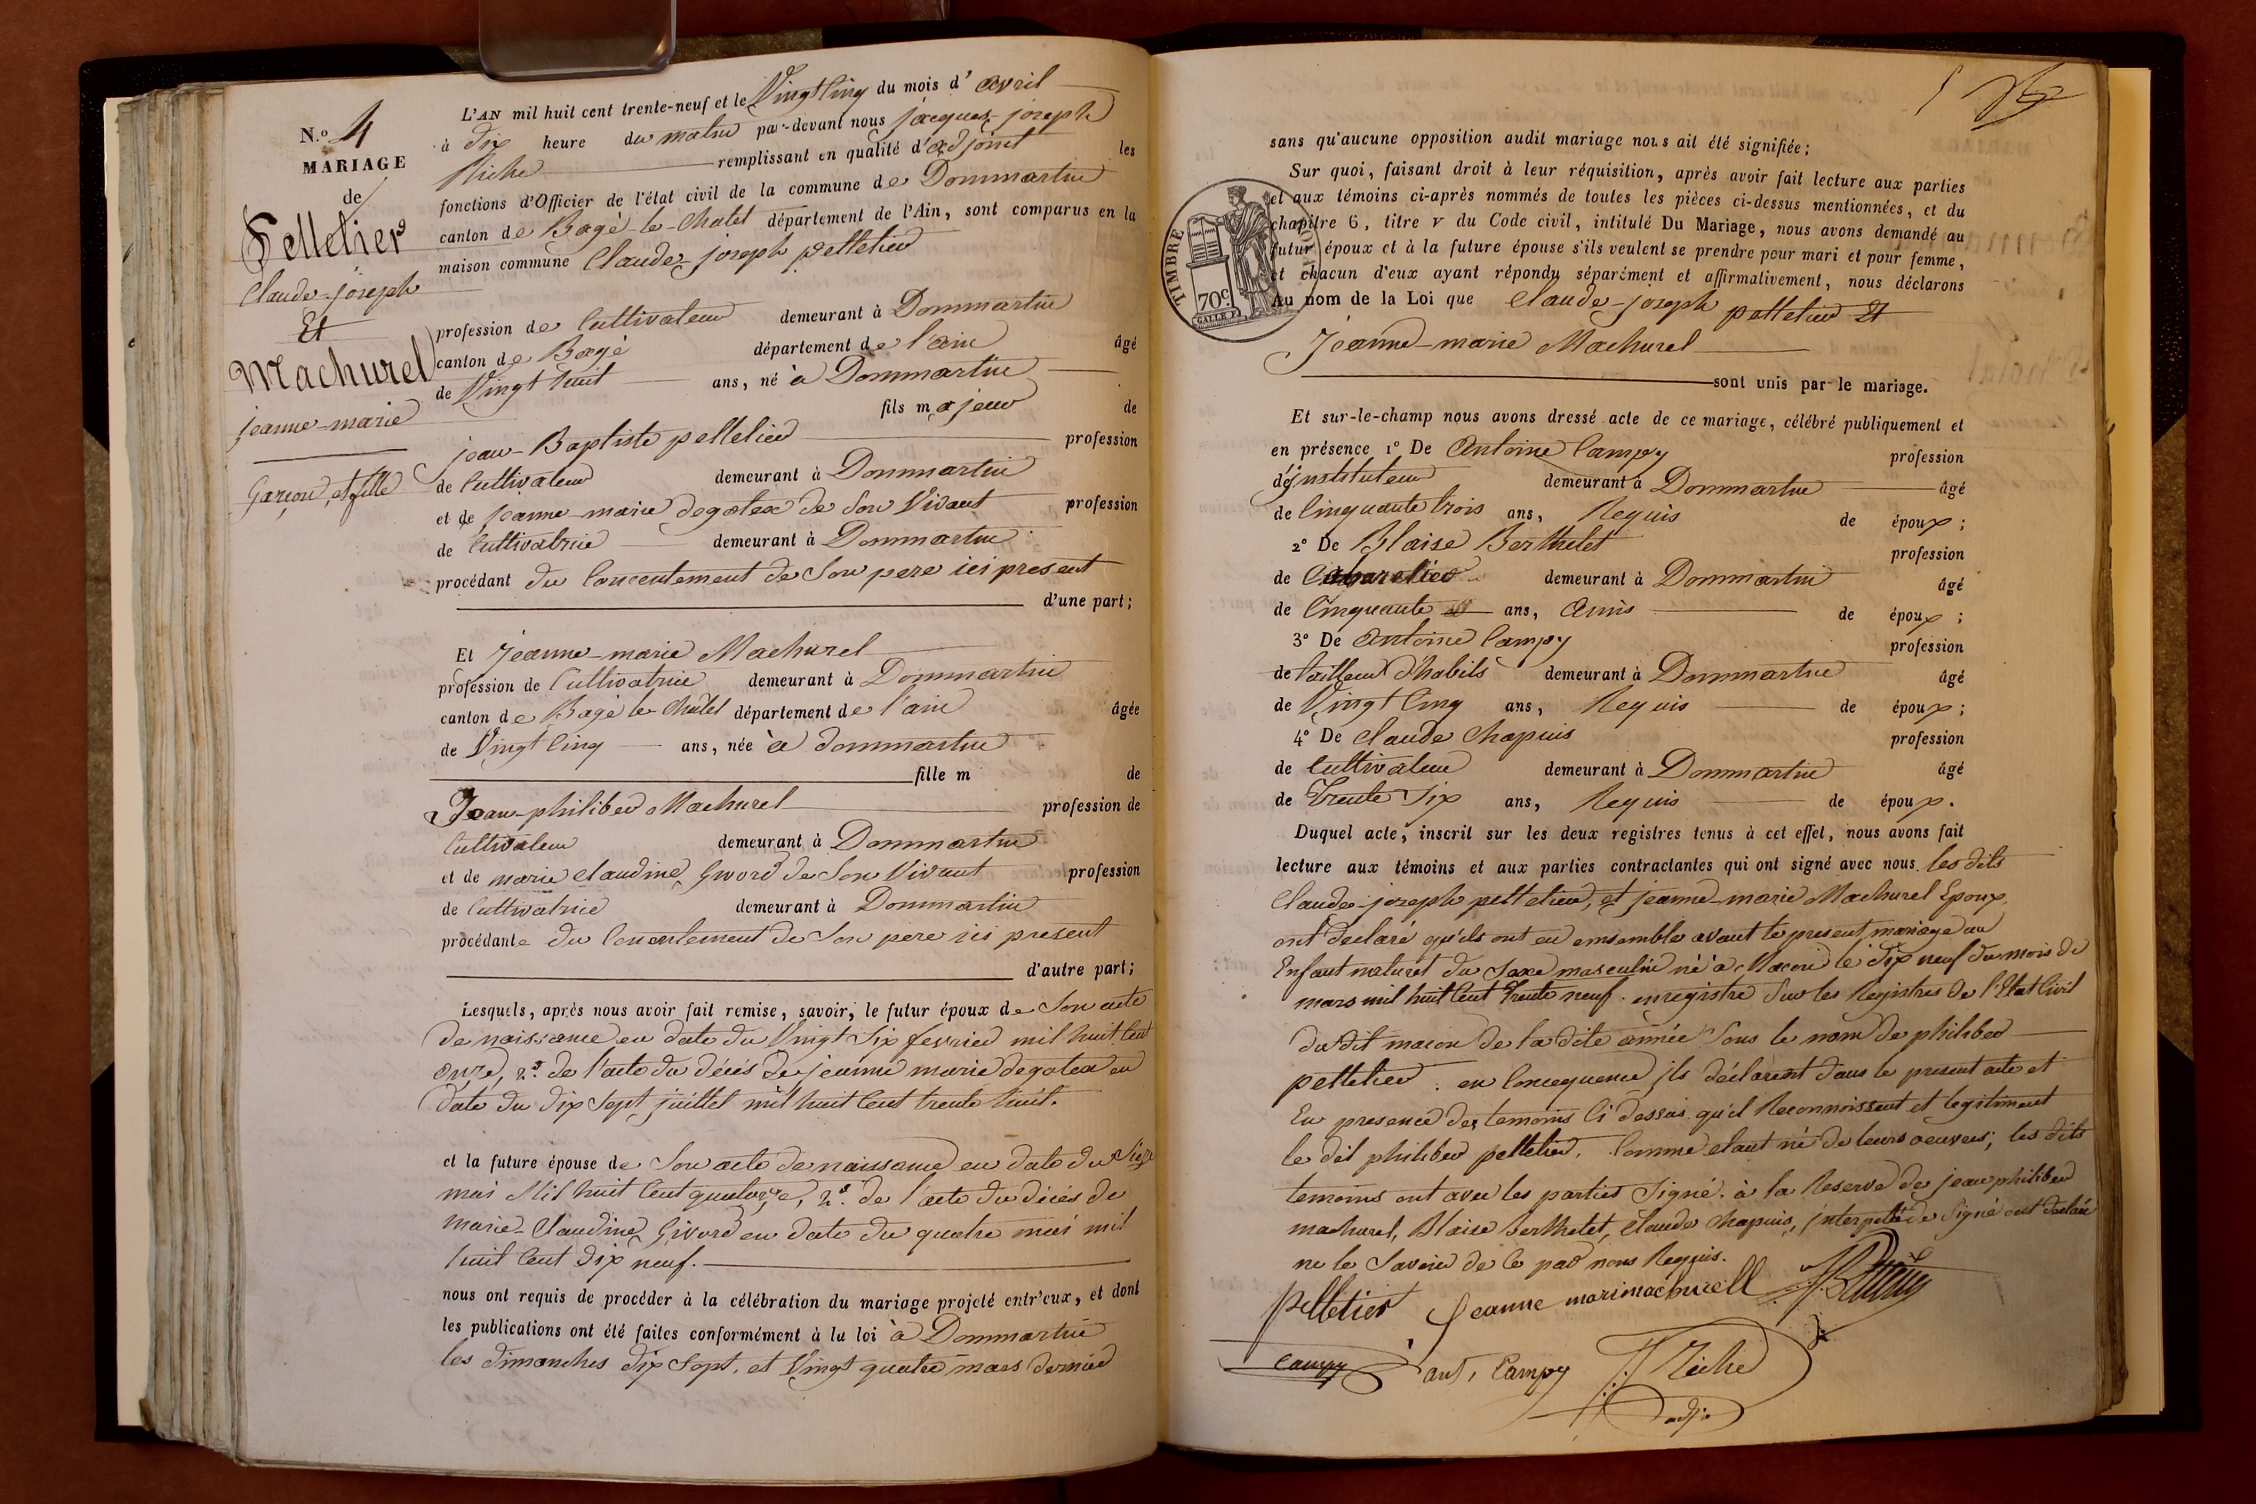 N.º 4
MARIAGE
de
Pelletier
Claude-joseph
Et
Machurel
jeanne-marie
Garçon, et fille
L'AN mil huit cent trente-neuf et le Vingt Cinq du mois d' avril
à dix heure du matin par-devant nous jacques-joseph
Riche remplissant en qualité d'adjoint les
fonctions d'Officier de l'état civil de la commune de Dommartin
canton de Bagé-le-Chatel département de l'Ain, sont comparus en la
maison commune Claude-joseph pelletier
profession de Cultivateur demeurant à Dommartin
canton de Bagé département de l'ain âgé
de Vingt huit ans, né à Dommartin
fils majeur de
jean-Baptiste pelletier profession
de Cultivateur demeurant à Dommartin
et de jeanne-marie degolea de Son Vivant profession
de Cultivatrice demeurant à Dommartin
procédant du Concentement de Son pere ici present
d'une part;
Et Jeanne-marie Machurel
profession de Cultivatrice demeurant à Dommartin
canton de Bagé le Châtel département de l'ain âgée
de Vingt Cinq ans, née à dommartin
fille m de
Jean-philiber Machurel profession de
Cultivateur demeurant à Dommartin
et de marie claudine Givord de Son Vivant profession
de Cultivatrice demeurant à Dommartin
procédante du Concentement de Son pere ici present
d'autre part;
Lesquels, après nous avoir fait remise, savoir, le futur époux de Son acte
de naissance en date du Vingt Six fevrier mil huit Cent
onze, 2º. de l'acte du décès de jeanne marie degolea en
date du dix Sept juillet mil huit Cent trente huit.
et la future épouse de Son acte de naissance en date du Six
mai Mil huit Cent quatorze, 2º. de l'acte du décès de
marie-Claudine Givord en date du quatre mai mil
huit Cent dix neuf.
nous ont requis de procéder à la célébration du mariage projeté entr'eux, et dont
les publications ont été faites conformément à la loi à Dommartin
les dimanches dix Sept. et Vingt quatre mars dernier
sans qu'aucune opposition audit mariage nous ait été signifiée;
Sur quoi, faisant droit à leur réquisition, après avoir fait lecture aux parties
et aux témoins ci-après nommés de toutes les pièces ci-dessus mentionnées, et du
chapitre 6, titre v du Code civil, intitulé Du Mariage, nous avons demandé au
futur époux et à la future épouse s'ils veulent se prendre pour mari et pour femme,
et chacun d'eux ayant répondu séparément et affirmativement, nous déclarons
Au nom de la Loi que Claude-joseph pelletier Et
Jeanne-marie Machurel
sont unis par le mariage.
TIMBRE
70c
Et sur-le-champ nous avons dressé acte de ce mariage, célébré publiquement et
en présence 1º De Antoine Campy profession
d'instituteur demeurant à Dommartin âgé
de Cinquante trois ans, Requis de époux;
2º De Blaise Berthelet profession
de Cabaretier demeurant à Dommartin âgé
de Cinquante ans, Amis de époux;
3º De Antoine Campy profession
de tailleur d'habits demeurant à Dommartin âgé
de Vingt Cinq ans, Requis de époux;
4º De Claude Chapuis profession
de Cultivateur demeurant à Dommartin âgé
de Trente Six ans, Requis de époux.
Duquel acte, inscrit sur les deux registres tenus à cet effet, nous avons fait
lecture aux témoins et aux parties contractantes qui ont signé avec nous les dits
Claude-joseph pelletier, et jeanne-marie Machurel Epoux,
ont declaré qu'ils ont eu emsemble avant le present mariage un
Enfant naturel du Saxe masculin né à Macon le dix neuf du mois de
mars mil huit Cent trente neuf. enregistré Sur les Registres de l'Etat Civil
du dit macon de la dite année Sous le nom de philiber
pelletier. en Concequence ils déclarent dans le present acte et
En presence des temoins Ci dessus qu'il Reconnoissent et legitiment
le dit philiber pelletier. Comme etant né de leurs oeuvres; les dits
temoins ont avec les parties Signé. à la Reserve de jean philiber
machurel, Blaise berthelet, Claude Chapuis, interpellé de Signé ont declaré
ne le Savoir de Ce par nous Requis.
Pelletier Jeanne mari machurell
campy ant. Campy Riche
adj.